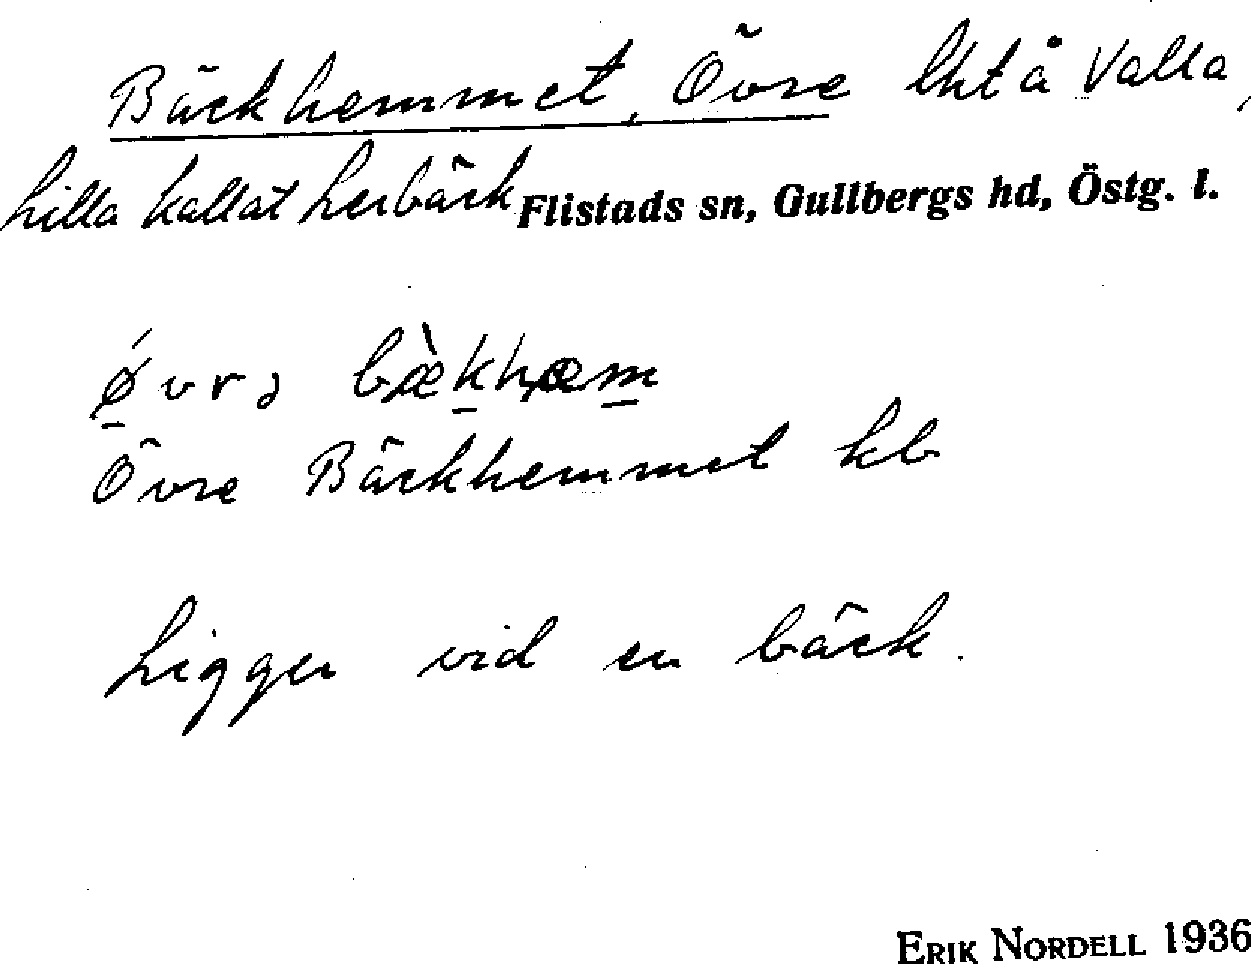 Bäckhemmet, Övre lht å Valla,
Lilla kallat Lerbäck Flistads sn, Gullbergs hd, Östg. l.
ǿvrə bæ̀khæm
Övre Bäckhemmet kb
Ligger vid en bäck.
ERIK NORDELL 1936